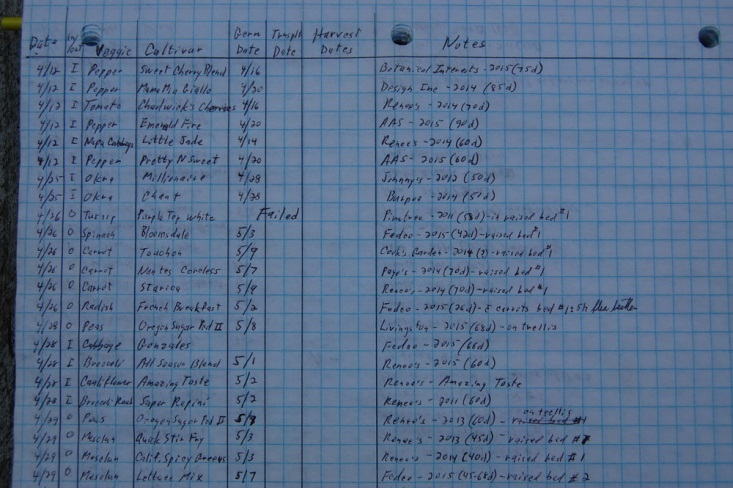 Date In/out Veggie Cultivar Germ Date Transplt Date Harvest Dates Notes
4/12 I Pepper Sweet Cherry Blend 4/16 Botanical Interests - 2015 (75d)
4/12 I Pepper Mama Mia Giallo 4/20 Design Inc - 2014 (85d)
4/12 I Tomato Chadwick's Cherries 4/16 Renee's - 2014 (70d)
4/12 I Pepper Emerald Fire 4/20 AAS - 2015 (90d)
4/12 I Napa Cabbage Little Jade 4/14 Renee's - 2014 (60d)
4/12 I Pepper Pretty N Sweet 4/20 AAS - 2015 (60d)
4/25 I Okra Millionaire 4/28 Johnny's - 2012 (50d)
4/25 I Okra Chant 4/28 Burpee - 2014 (51d)
4/26 O Turnip Purple Top White Failed Pinetree - 2011 - in raised bed #1
4/26 O Spinach Bloomsdale 5/3 Fedco - 2015 (42d) - raised bed #1
4/26 O Carrot Touchon 5/9 Cook's Garden - 2014 (?) - raised bed #1
4/26 O Carrot Nantes Coreless 5/7 - 2014 (70d) - raised bed #1
4/26 O Carrot Starica 5/9 Renee's - 2014 (70d) - raised bed #1
4/26 O Radish French Breakfast 5/2 Fedco - 2015 (26d) - c carrots bed #1
4/28 O Peas Oregon Sugar Pod II 5/8 Livingston - 2015 (68d) - on trellis
4/28 I Cabbage Gonzales Fedco - 2015 (68d)
4/28 I Broccoli All Season Blend 5/1 Renee's - 2015 (60d)
4/28 I Cauliflower Amazing Taste 5/2 Renee's - Amazing Taste
4/28 I Broccoli Raab Super Rapini 5/2 Renee's - 2011 (60d)
4/29 O Peas Oregon Sugar Pod II 5/8 Renee's - 2013 (60d) - on trellis raised bed #1
4/29 O Mesclun Quick Stir Fry 5/3 Renee's - 2013 (45d) - raised bed #1
4/29 O Mesclun Calif. Spicy Greens 5/3 Renee's - 2014 (40d) - raised bed #1
4/29 O Mesclun Lettuce Mix 5/7 Fedco - 2015 (45-68d) - raised bed #2